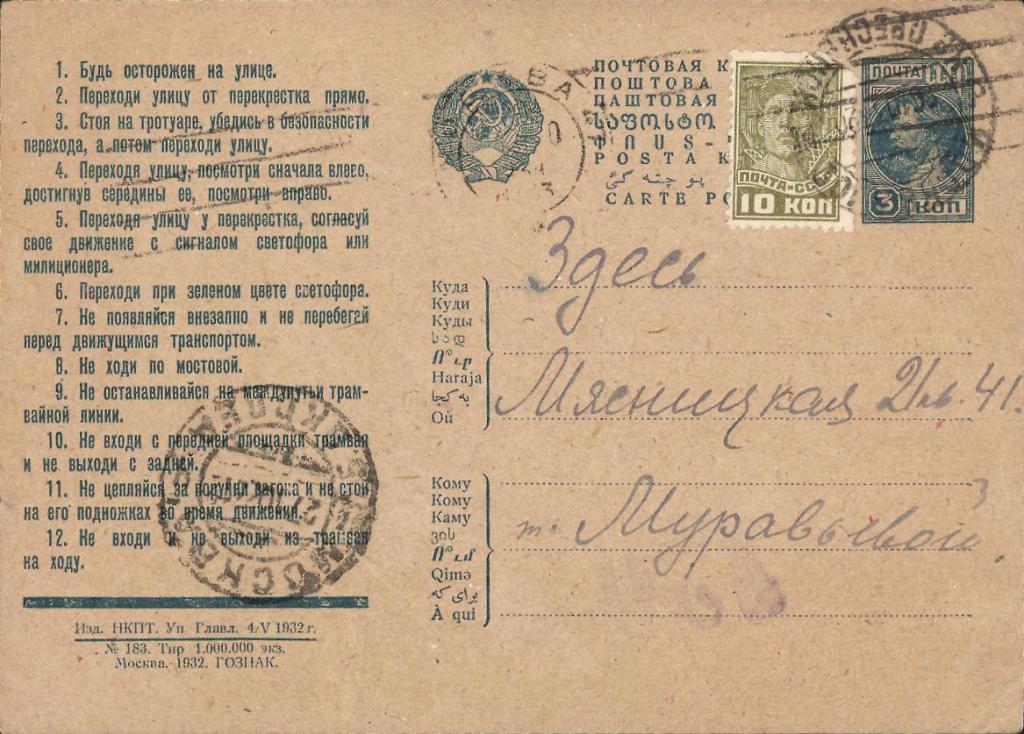 1. Будь осторожен на улице.
2. Переходи улицу от перекрестка прямо.
3. Стоя на тротуаре, убедись в безопасности
перехода, а потом переходи улицу.
4. Переходя улицу, посмотри сначала влево,
достигнув середины ее, посмотри вправо.
5. Переходя улицу у перекрестка, согласуй
свое движение с сигналом светофора или
милиционера.
6. Переходи при зеленом цвете светофора.
7. Не появляйся внезапно и не перебегай
перед движущимся транспортом.
8. Не ходи по мостовой.
9. Не останавливайся на междупутьи трам-
вайной линии.
10. Не входи с передней площадки трамвая
и не выходи с задней.
11. Не цепляйся за поручни вагона и не стой
на его подножках во время движения.
12. Не входи и не выходи из трамвая
на ходу.
Изд. НКПТ. Уп. Главл. 4/V 1932 г.
№ 183. Тир 1.000.000 экз.
Москва. 1932. ГОЗНАК.
МОСКВА
ПОЧТОВАЯ К
ПОШТОВА
ПАШТОВАЯ
ՓՈՍՏ-
POSTA K
CARTE PO
ПОЧТА-СССР
10 КОП
ПОЧТА
3 КОП
Здесь
Куда
Куди
Куды
სად
Ո՞ւր
Haraja
به کجا
Où
Мясницкая 21 кв. 41.
Кому
Кому
Каму
ვის
Ո՞ւմ
Qimə
برای که
À qui
т. Муравьевой